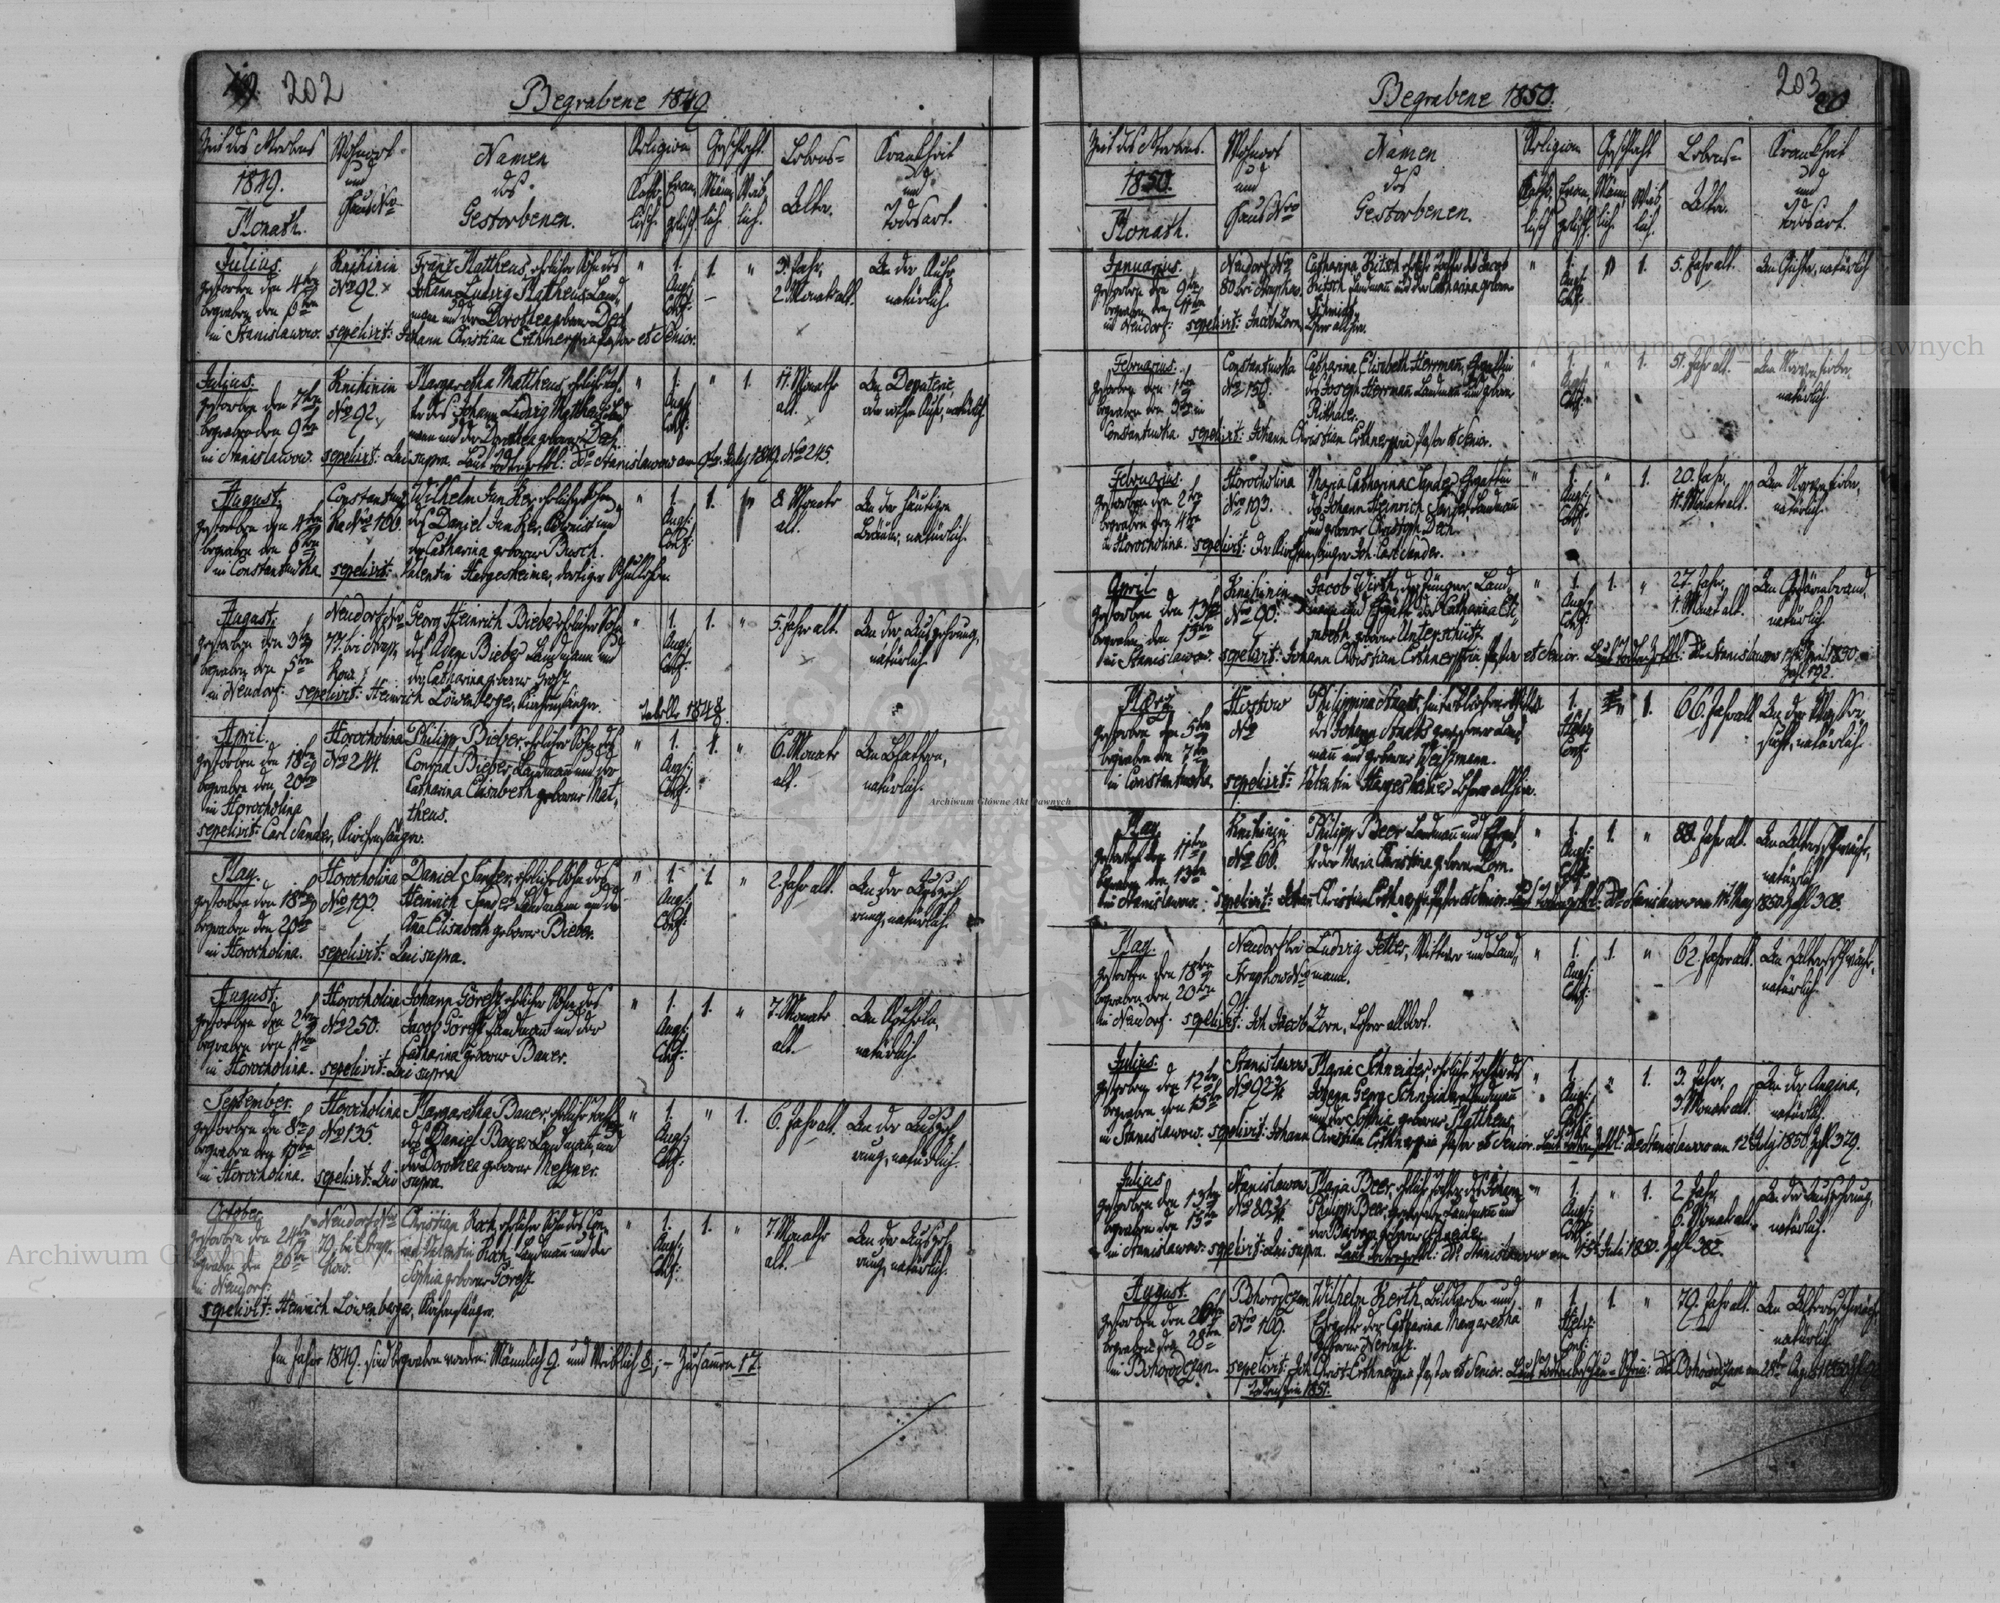 202
Begrabene 1849.
Zeit des Sterbens
1849.
Monath.
Wohnort
und
Haus Nro
Namen
des
Gestorbenen.
Religion
Katho-
lisch.
Evan-
gelisch.
Geschlecht.
Männ-
lich.
Weib-
lich.
Lebens-
Alter.
Krankheit
und
Todesart.
Julius.
gestorben den 4ten
begraben den 6ten
in Stanislawow.
Knihinin
Nro 92.
Franz Mattheus, ehelicher Sohn des
Johann Ludwig Matheus Land-
mann und der Dorothea geborne Dech
sepelivit: Johann Christian Erthner Pastor et Senior.
" 1. Augs: Conf: 1. "
3. Jahr,
2 Monat alt.
An der Ruhr
natürlich.
Julius.
gestorben den 7ten
begraben den 9ten
in Stanislawow.
Knihinin
Nro 92.
Margaretha Mattheus, eheliche Toch-
ter des Johann Ludwig Matheus Land-
mann und der Dorothea geborne Dech.
sepelivit: Qui supra.
Stanislawow am July 1849. No 245.
" 1. Augs: Conf: " 1.
11. Monathe
alt.
natürlich.
August.
gestorben den 4ten
begraben den 6ten
in Constantinuwka
Constantinuw-
ka Nro 166
Wilhelm Juncker, ehelicher Sohn
des Daniel Juncker, und
der Catharina geborne Busch.
sepelivit: Valentin Hargesheimer, dortiger Schullehrer.
" 1. Augs: Conf: 1. "
8. Monate
alt.
An der häutigen
Bräune, natürlich.
August.
gestorben den 3ten
begraben den 5ten
in Neudorf:
Neudorf Nro
77. bei Stryp-
kow
Georg Heinrich Bieber ehelicher Sohn
des Adam Bieber Landmann und
der Catharina geborne
sepelivit: Heinrich Löwenberger, Kirchensänger.
" 1. Augs: Conf: 1. "
5. Jahr alt.
An der Auszehrung,
natürlich.
April.
gestorben den 18ten
begraben den 20ten
in Horocholina
Horocholina
Nro 244.
Philipp Bieber, ehelicher Sohn des
Conrad Bieber, Landmann und der
Catharina Elisabeth geborne Mat-
theus.
sepelivit: Carl Sander, Kirchensänger.
" 1. Augs: Conf: 1. "
6. Monate
alt.
An Blattern,
natürlich.
May.
gestorben den 18ten
begraben den 20ten
in Horocholina.
Horocholina
Nro 193
Daniel Sander, ehelicher Sohn des
Heinrich Sander Landmann und der
Ana Elisabeth geborne Bieber.
sepelivit: Qui supra.
" 1. Augs: Conf: 1. "
2. Jahr alt.
An der Auszeh-
rung, natürlich.
August.
gestorben den 2ten
begraben den 4ten
in Horocholina.
Horocholina
Nro 250.
Johann Göretz, ehelicher Sohn des
Jacob Göretz Landmann und der
Catharina geborne Bauer.
sepelivit: Qui supra
" 1. Augs: Conf: 1. "
7. Monate
alt.
natürlich.
September.
gestorben den 8ten
begraben den 10ten
in Horocholina.
Horocholina
Nro 135.
Margaretha Bauer, eheliche Tochter
des Daniel Bauer Landmann, und
der Dorothea geborne Meszner.
sepelivit: Qui supra.
" 1. Augs: Conf: " 1.
6. Jahr alt.
An der Auszeh-
rung, natürlich.
October.
gestorben den 24ten
begraben den 26ten
in Neudorf:
Neudorf Nro
79. bei Stryp-
kow.
Christian Koch, ehelicher Sohn des Con-
rad Valentin Koch, Landmann und der
Sophia geborne Göretz
sepelivit: Heinrich Löwenberger, Kirchensänger.
" 1. Augs: Conf: 1. "
7 Monathe
alt.
An der Auszeh-
rung, natürlich.
Im Jahr 1849. sind begraben worden: Männlich 9. und Weiblich 8.; – Zusammen 17.
203
Begrabene 1850.
Zeit des Sterbens.
1850.
Monath.
Wohnort
und
Haus Nro
Namen
des
Gestorbenen.
Religion
Katho-
lisch
Evan-
gelisch.
Geschlecht
Männ-
lich.
Weib-
lich.
Lebens-
Alter.
Krankheit
und
Todesart.
Januarius.
gestorben den 9ten
begraben den 11ten
in Neudorf:
Neudorf Nro
80 bei Strypkow.
Catharina Kitsch eheliche Tochter des Jacob
Kitsch Landmann und der Catharina geborne
Schmidt.
sepelivit: Jacob Zorn, Lehrer allhier.
" 1. Augs: Conf: " 1.
5. Jahr alt.
natürlich
Februarius.
gestorben den 1ten
begraben den 3ten in
Constantinuwka
Constantinuwka
Nro 159.
Catharina Elisabeth Herrman, Ehegattin
des Joseph Herrman Landmann und geborne
sepelivit: Johann Christian Erthner Pastor et Senior.
" 1. Augs: Conf: " 1.
51. Jahr alt.
Am Nervenfieber,
natürlich.
Februarius.
gestorben den 2ten
begraben den 4ten
in Horocholina.
Horocholina
Nro 193.
Maria Catharina Sander, Ehegattin
des Johann Heinrich Sander, Landmann
und geborne Christoph Dech.
sepelivit: Der Kirchensänger Joh. Carl Sander.
" 1. Augs: Conf: " 1.
20. Jahr,
11. Monat alt.
Am Nervenfieber,
natürlich.
April
gestorben den 13ten
begraben den 15ten
in Stanislawow.
Knihinin
Nro 90.
Jacob Wirth, der Jüngere, Land-
mann und Ehegatte der Catharina Eli-
sabeth geborne Unterschütz
sepelivit: Johann Christian Erthner Pastor et Senior.
Stanislawow April 1850.
" 1. Augs: Conf: 1. "
27. Jahr,
1. Monat alt.
Am Gehirnbrand,
natürlich.
März
gestorben den 5ten
begraben den 7ten
in Constantinuwka
Hostow
Nro
Philippina Staats, hinterbliebene Wittwe
des Johann Staats gewesener Land-
mann und geborne Weissmann.
sepelivit: Valentin Hargesheimer Lehrer allhier.
1. Helv: Conf: " 1.
66. Jahr alt
An der Wasser-
sucht, natürlich.
May.
gestorben den 11ten
begraben den 13ten
in Stanislawow.
Knihinin
Nro 66.
Philipp Beer Landmann und Ehegat-
te der Maria Christina geborne Zorn.
sepelivit: Johann Christian Erthner Pastor et Senior.
Stanislawow am May 1850 Zahl 308.
" 1. Augs: Conf: 1. "
Jahr alt
An Altersschwäche,
natürlich.
May.
gestorben den 18ten
begraben den 20ten
in Neudorf:
Neudorf bei
Strypkow Nro
Ludwig Jetter, Wittwer und Land-
mann.
sepelivit: Joh. Jacob Zorn, Lehrer alldort.
" 1. Augs: Conf: 1. "
62. Jahr alt.
An Altersschwäche,
natürlich.
Julius.
gestorben den 12ten
begraben den 15ten
in Stanislawow.
Stanislawow
Maria Schneider, eheliche Tochter des
Johann Georg Schneider Landmann
und der Sophia geborne Mattheus.
sepelivit: Johann Christian Erthner Pastor et Senior.
Stanislawow am 12ten July 1850 Zahl 379.
" 1. Augs: Conf: " 1.
3. Jahr,
3. Monat alt.
An der Angina,
natürlich.
Julius
gestorben den 13ten
begraben den 15ten
in Stanislawow.
Stanislawow
Maria Beer, eheliche Tochter des Johann
Philipp Beer, Landmann und
der Barbara geborne Schneider
sepelivit: Qui supra.
Stanislawow am 15ten Juli 1850. Zahl 382.
" 1. Augs: Conf: " 1.
2. Jahr,
6. Monat alt.
An der Auszehrung,
natürlich
August.
gestorben den 26ten
begraben den 28ten
in Bohorodczan.
Bohorodczan
Nro 169.
Wilhelm Kerth, und
Ehegatte der Catharina Margaretha
geborne Nerbass.
sepelivit: Joh. Christ. Erthner Pastor et Senior.
Bohorodczan am 28ten August 1850
" 1. Helv: Conf: 1. "
79. Jahr alt.
An Altersschwäche
natürlich
Archiwum Główne Akt Dawnych
Archiwum Główne Akt Dawnych
Archiwum Główne Akt Dawnych